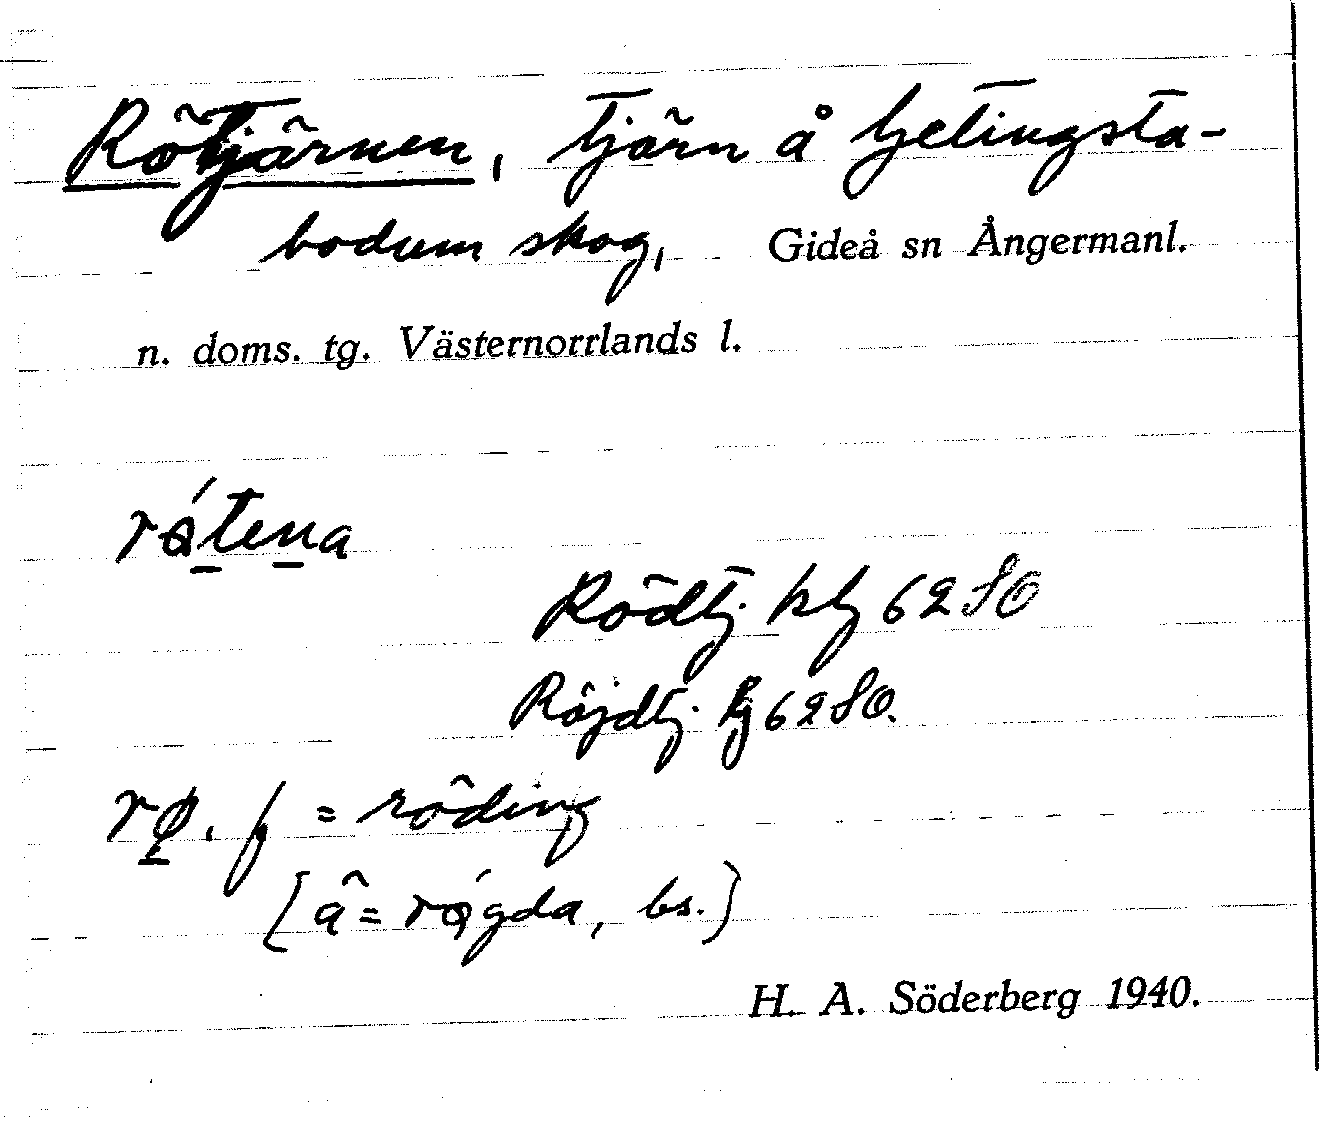 Rötjärnen, tjärn å Getingsta-
bodum skog, Gideå sn Ångermanl.
n. doms. tg. Västernorrlands l.
rǿtena
Rödtj. 6280
Röjdtj. 6280.
rø. f = röding
[â = rǿgda, bs.]
H. A. Söderberg 1940.